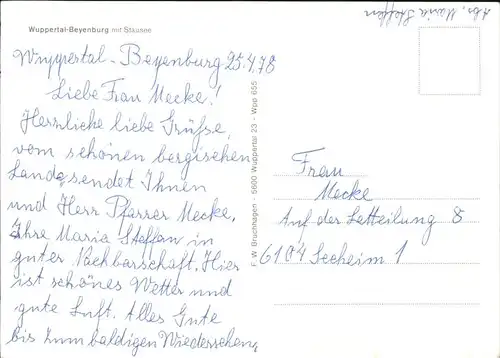 Wuppertal-Beyenburg mit Stausee
Abs. Maria Steffen
Wuppertal - Beyenburg 25.4.78
Liebe Frau Mecke!
Herrliche liebe Grüsse,
vom schönen bergischen
Lande sendet Ihnen
und Herr Pfarrer Mecke,
Ihre Maria Steffen in
guter Nachbarschaft. Hier
ist schönes Wetter und
gute Luft. Alles Gute
bis zum baldigen Wiedersehen,
F. W. Bruchhagen · 5600 Wuppertal 23 · Wpp 655
Frau
Mecke
Auf der Letteilung 8
6104 Seeheim 1